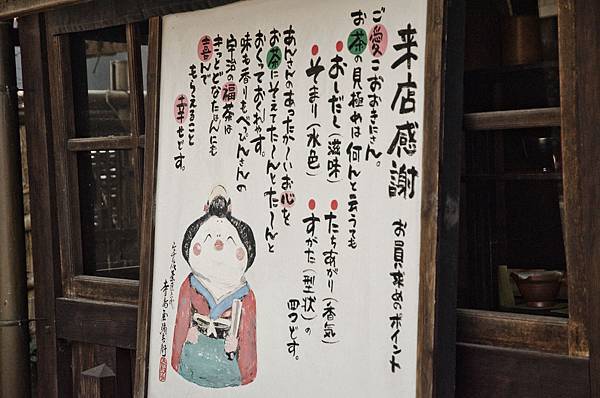 来店感謝
お買求めのポイント
ご愛こおおきにさん。
お茶の見極めは何んと云うても
・おしだし(滋味)
・たちあがり(香気)
・そまり(水色)
・すがた(型状)の
四つどす。
あんさんのあったか〜いお心を
お茶にそえてた〜んとた〜んと
おくっておくれやす。
味も香りもべっぴんさんの
宇治の福茶は
きっとどなたはんにも
喜んで
もらえること
幸せどす。